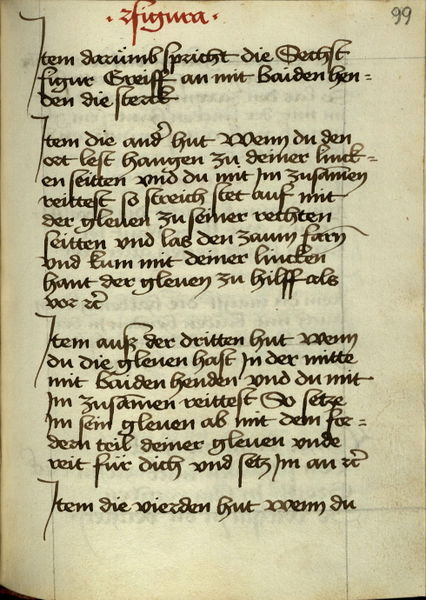 · 2figura ·
99
Item darümb spricht die Sechst
figur Greiff an mit baiden hen=
den die sterck
Item die and̛ hut Wenn du den
ort lest hangen zu deiner linck=
en seitten vnd du mit Im zusamen
reittest so streich stet auf mit
der gleuen zu seiner rechten
seitten vnd las den zaum farn
vnd kum mit deiner lincken
hant der gleuen zu hilff als
vor rc̄
Item ausz der dritten hut wenn
du die gleuen hast In der mitte
mit baiden henden vnd du mit
Im zusamen reittest So setze
Im sein gleuen ab mit dem for=
dern teil deiner gleuen vnde
reit für dich vnd setz Im an rc̄
Item die vierden hut wenn du